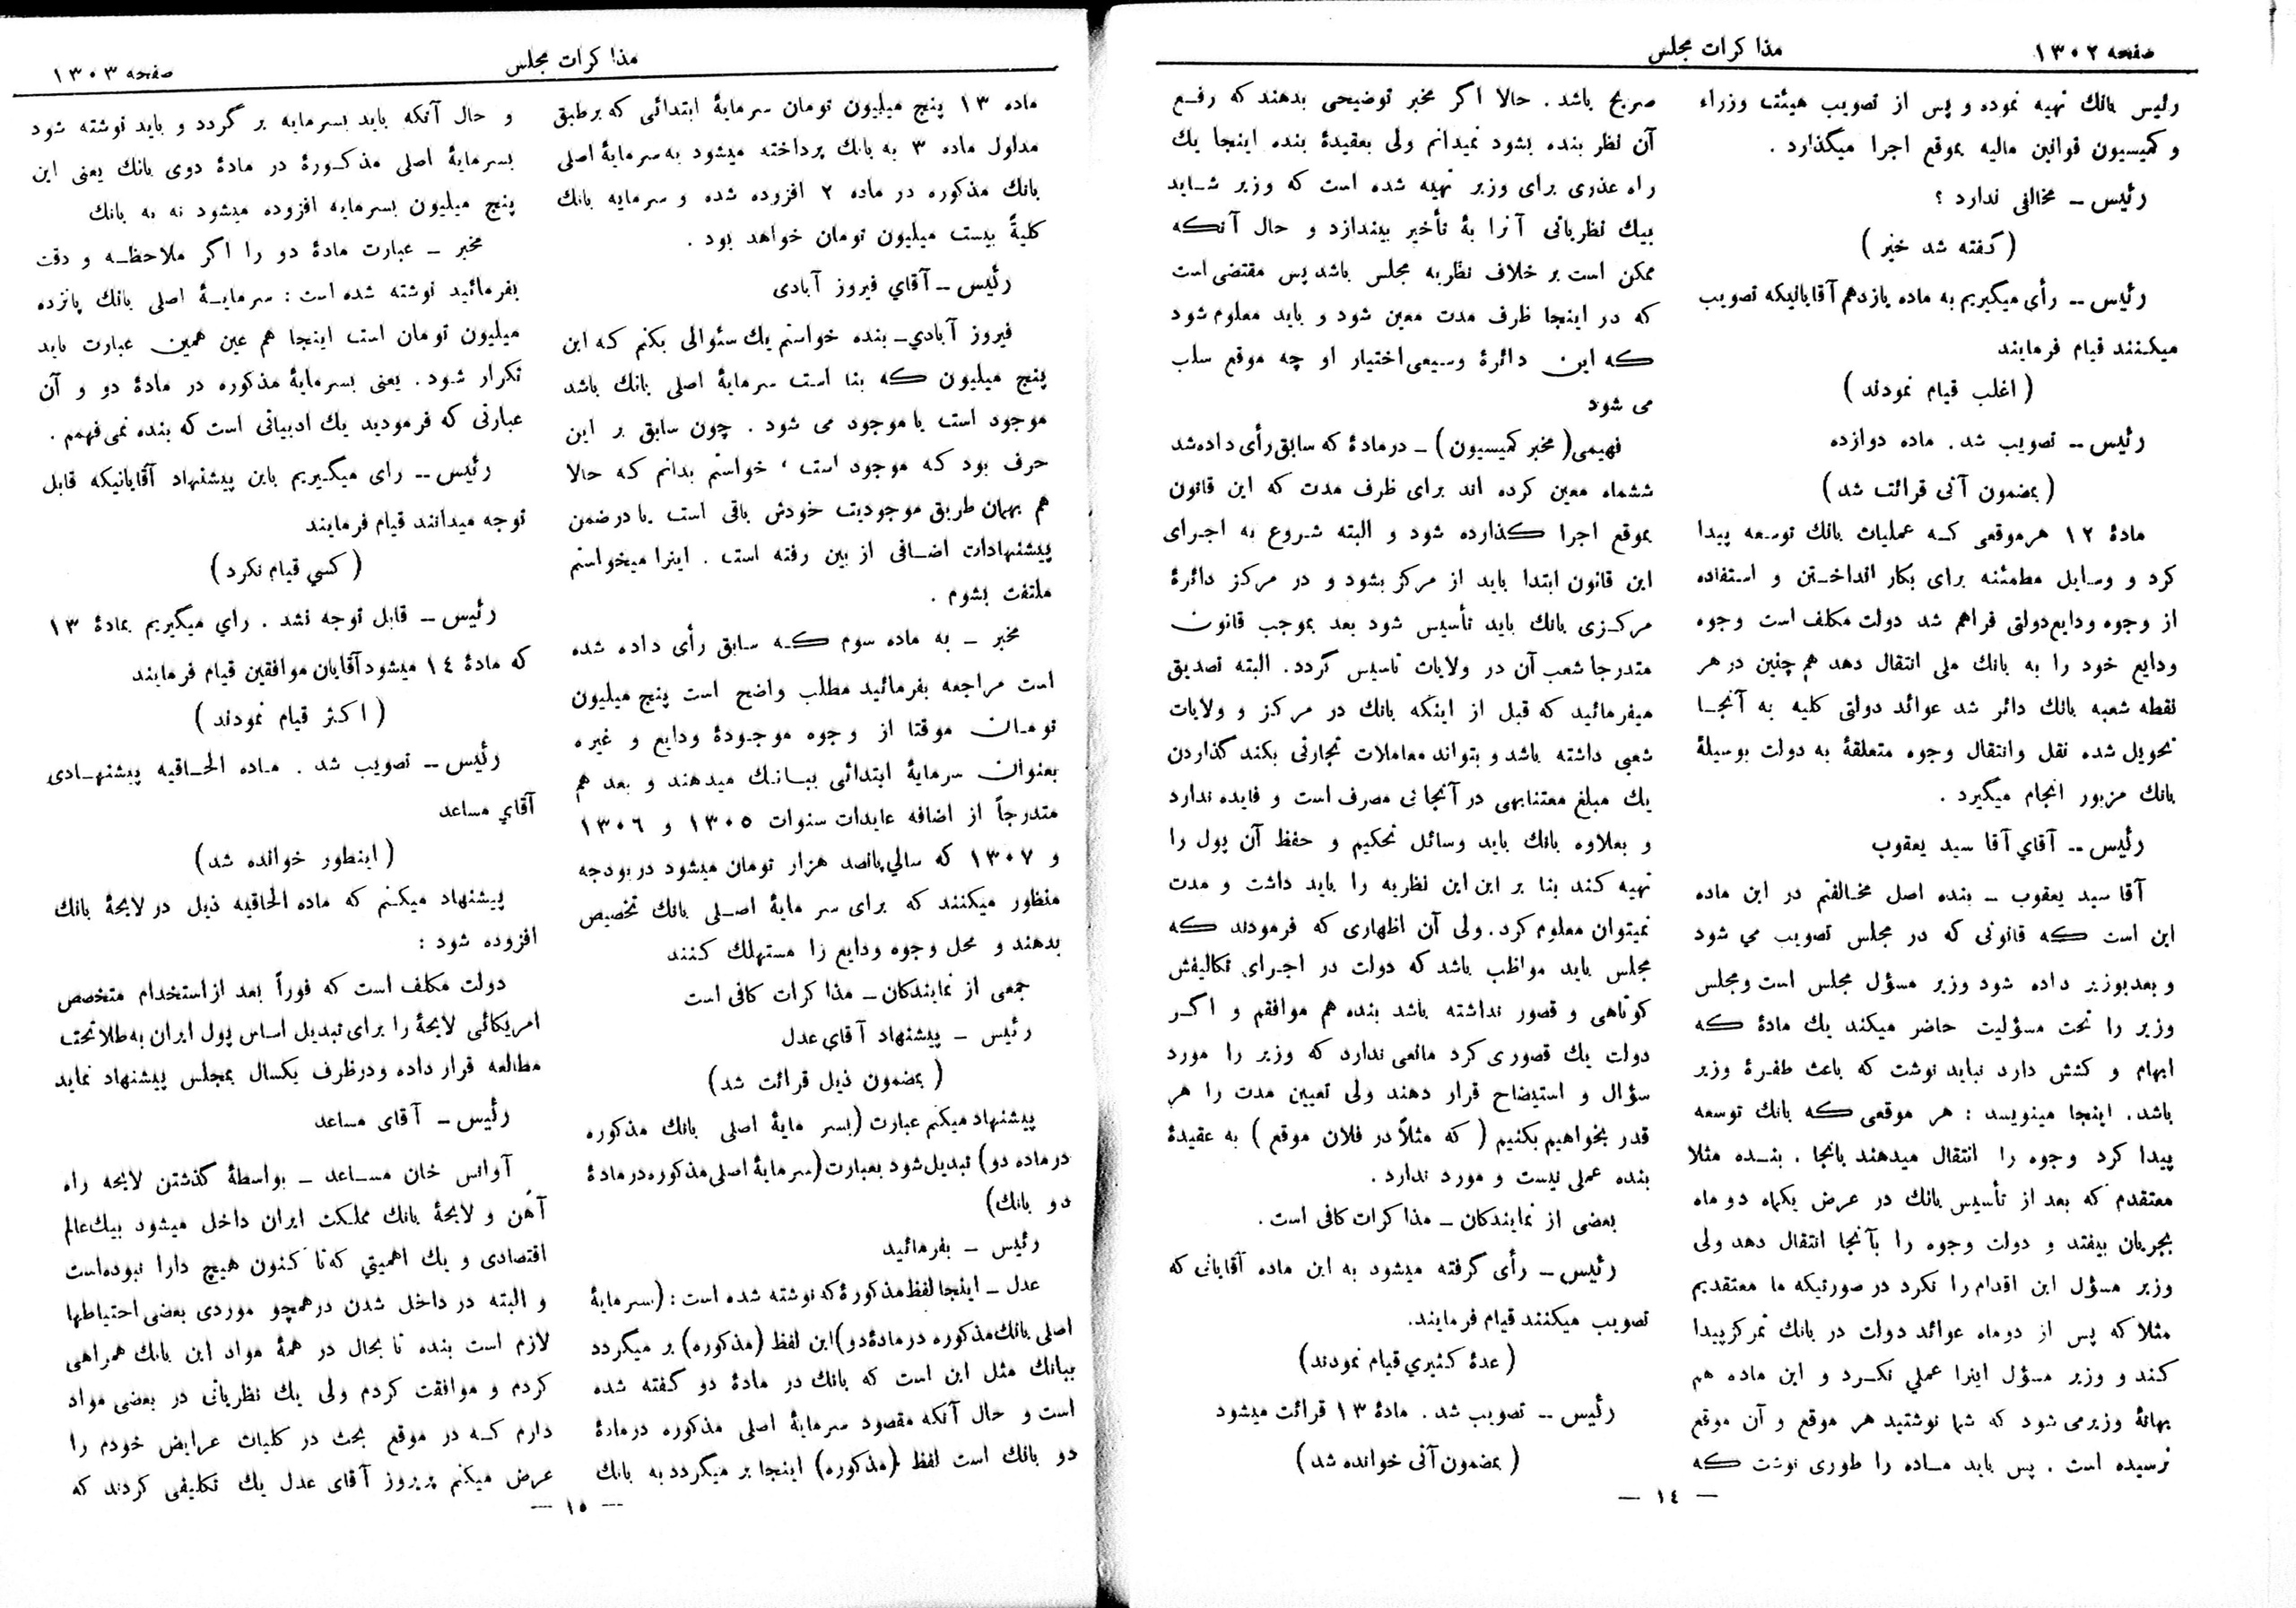 صفحه ۱۳۰۲
مذاکرات مجلس
رئیس بانك تهیه نموده و پس از تصویب هیئت وزراء
و کمیسیون قوانین مالیه بموقع اجرا میگذارد .
رئیس – مخالفی ندارد ؟
( گفته شد خیر )
رئیس -- رأی میگیریم به ماده یازدهم آقایانیکه تصویب
میکنند قیام فرمایند
( اغلب قیام نمودند )
رئیس -- تصویب شد. ماده دوازده
( بمضمون آتی قرائت شد )
مادهٔ ۱۲ هرموقعی که عملیات بانك توسعه پیدا
کرد و وسایل مطمئنه برای بکار انداختن و استفاده
از وجوه ودایع دولتی فراهم شد دولت مکلف است وجوه
ودایع خود را به بانك ملی انتقال دهد هم چنین در هر
نقطه شعبه بانك دائر شد عوائد دولتی کلیه به آنجا
تحویل شده نقل وانتقال وجوه متعلقهٔ به دولت بوسیلهٔ
بانك مزبور انجام میگیرد .
رئیس -- آقاي آقا سید یعقوب
آقا سید یعقوب – بنده اصل مخالفتم در این ماده
این است که قانونی که در مجلس تصویب می شود
و بعد بوزیر داده شود وزیر مسؤل مجلس است ومجلس
وزیر را تحت مسؤلیت حاضر میکند یك مادهٔ که
ابهام و کشش دارد نباید نوشت که باعث طفرهٔ وزیر
باشد. اینجا مینویسد : هر موقعی که بانك توسعه
پیدا کرد وجوه را انتقال میدهند بانجا . بنده مثلا
معتقدم که بعد از تأسیس بانك در عرض یکماه دو ماه
بجریان بیفتد و دولت وجوه را بآنجا انتقال دهد ولی
وزیر مسؤل این اقدام را نکرد در صورتیکه ما معتقدیم
مثلا که پس از دوماه عوائد دولت در بانك تمرکز پیدا
کند و وزیر مسؤل اینرا عملي نکرد و این ماده هم
بهانهٔ وزیر می شود که شما نوشتید هر موقع و آن موقع
نرسیده است . پس باید ماده را طوری نوشت که
صریح باشد . حالا اگر مخبر توضیحی بدهند که رفع
آن نظر بنده بشود نمیدانم ولی بعقیدهٔ بنده اینجا یك
راه عذری برای وزیر تهیه شده است که وزیر شاید
بیك نظریاتی آنرا بهٔ تأخیر بیندازد و حال آنکه
ممکن است بر خلاف نظریه مجلس باشد پس مقتضی است
که در اینجا ظرف مدت معین شود و باید معلوم شود
که این دائرهٔ وسیعی اختیار او چه موقع سلب
می شود
فهیمی ( مخبر کمیسیون ) – درمادهٔ که سابق رأی داده شد
ششماه معین کرده اند برای ظرف مدت که این قانون
بموقع اجرا گذارده شود و البته شروع به اجرای
این قانون ابتدا باید از مرکز بشود و در مرکز دائرهٔ
مرکزی بانك باید تأسیس شود بعد بموجب قانون
متدرجا شعب آن در ولایات تاسیس گردد. البته تصدیق
میفرمائید که قبل از اینکه بانك در مرکز و ولایات
شعبی داشته باشد و بتواند معاملات تجارتی بکند گذاردن
یك مبلغ معتنابهی در آنجا نی مصرف است و فایده ندارد
و بعلاوه بانك باید وسائل تحکیم و حفظ آن پول را
تهیه کند بنا بر این این نظریه را باید داشت و مدت
نمیتوان معلوم کرد. ولی آن اظهاری که فرمودند که
مجلس باید مواظب باشد که دولت در اجرای تکالیفش
کوتاهی و قصور نداشته باشد بنده هم موافقم و اگر
دولت یك قصوری کرد مانعی ندارد که وزیر را مورد
سؤال و استیضاح قرار دهند ولی تعیین مدت را هر
قدر بخواهیم بکنیم ( که مثلاً در فلان موقع ) به عقیدهٔ
بنده عملی نیست و مورد ندارد .
بعضی از نمایندکان – مذاکرات کافی است .
رئیس – رأی گرفته میشود به این ماده آقایانی که
تصویب میکنند قیام فرمایند.
( عدهٔ کثیري قیام نمودند)
رئیس -- تصویب شد. مادهٔ ۱۳ قرائت میشود
( بمضمون آتی خوانده شد )
— ۱٤ —
مذاکرات مجلس
صفحه ۱۳۰۳
ماده ۱۳ پنج میلیون تومان سرمایهٔ ابتدائی که برطبق
مداول ماده ۳ به بانك پرداخته میشود به سرمایهٔ اصلی
بانك مذکوره در ماده ۲ افزوده شده و سرمایه بانك
کلیةً بیست میلیون تومان خواهد بود .
رئیس -- آقاي فیروز آبادی
فیروز آبادي – بنده خواستم یك سئوالی بکنم که این
پنج میلیون که بنا است سرمایهٔ اصلی بانك باشد
موجود است یا موجود می شود . چون سابق بر این
حرف بود که موجود است ، خواستم بدانم که حالا
هم بهمان طریق موجودیت خودش باقی است یا در ضمن
پیشنهادات اضافی از بین رفته است . اینرا میخواستم
ملتفت بشوم .
مخبر – به ماده سوم که سابق رأی داده شده
است مراجعه بفرمائید مطلب واضح است پنج میلیون
تومان موقتا از وجوه موجودهٔ ودایع و غیره
بعنوان سرمایهٔ ابتدائی ببانك میدهند و بعد هم
متدرجاً از اضافه عایدات سنوات ۱۳۰٥ و ۱۳۰٦
و ۱۳۰۷ که سالي پانصد هزار تومان میشود در بودجه
منظور میکنند که برای سر مایهٔ اصلی بانك تخصیص
بدهند و محل وجوه ودایع را مستهلك کنند
جمعی از نمایندکان – مذاکرات کافی است
رئیس – پیشنهاد آقاي عدل
( بمضمون ذیل قرائت شد )
پیشنهاد میکنم عبارت (بسر مایهٔ اصلی بانك مذکوره
در ماده دو) تبدیل شود بعبارت (سرمایهٔ اصلی مذکوره در مادهٔ
دو بانك)
رئیس – بفرمائید
عدل – اینجا لفظ مذکورهٔ که نوشته شده است : (بسرمایهٔ
اصلی بانك مذکوره در مادهٔ دو) این لفظ (مذکوره) بر میگردد
ببانك مثل این است که بانك در مادهٔ دو گفته شده
است و حال آنکه مقصود سرمایهٔ اصلی مذکوره در مادهٔ
دو بانك است لفظ (مذکوره) اینجا بر میگردد به بانك
و حال آنکه باید بسرمایه بر گردد و باید نوشته شود
بسرمایهٔ اصلی مذکورهٔ در مادهٔ دوی بانك یعنی این
پنج میلیون بسرمایه افزوده میشود نه به بانك
مخبر – عبارت مادهٔ دو را اگر ملاحظه و دقت
بفرمائید نوشته شده است : سرمایهٔ اصلی بانك پانزده
میلیون تومان است اینجا هم عین همین عبارت باید
تکرار شود. یعنی بسرمایهٔ مذکوره در مادهٔ دو و آن
عبارتی که فرمودید یك ادبیاتی است که بنده نمی فهمم .
رئیس -- رای میگیریم باین پیشنهاد آقایانیکه قابل
توجه میدانند قیام فرمایند
( کسي قیام نکرد )
رئیس – قابل توجه نشد . رأي میگیریم بمادهٔ ۱۳
که مادهٔ ۱٤ میشود آقایان موافقین قیام فرمایند
( اکثر قیام نمودند )
رئیس – تصویب شد . ماده الحاقیه پیشنهادی
آقاي مساعد
( اینطور خوانده شد )
پیشنهاد میکنم که ماده الحاقیه ذیل در لایحهٔ بانك
افزوده شود :
دولت مکلف است که فوراً بعد از استخدام متخصص
امریکائی لایحهٔ را برای تبدیل اساس پول ایران به طلا تحت
مطالعه قرار داده ودرظرف یکسال بمجلس پیشنهاد نماید
رئیس – آقای مساعد
آوانس خان مساعد – بواسطهٔ گذشتن لایحه راه
آهن و لایحهٔ بانك مملکت ایران داخل میشود بیك عالم
اقتصادی و یك اهمیتي که تا کنون هیچ دارا نبوده است
و البته در داخل شدن در همچو موردی بعضی احتیاطها
لازم است بنده تا بحال در همهٔ مواد این بانك همراهی
کردم و موافقت کردم ولی یك نظریاتی در بعضی مواد
دارم که در موقع بحث در کلیات عرایض خودم را
عرض میکنم پریروز آقای عدل یك تکلیفی کردند که
— ۱٥ —